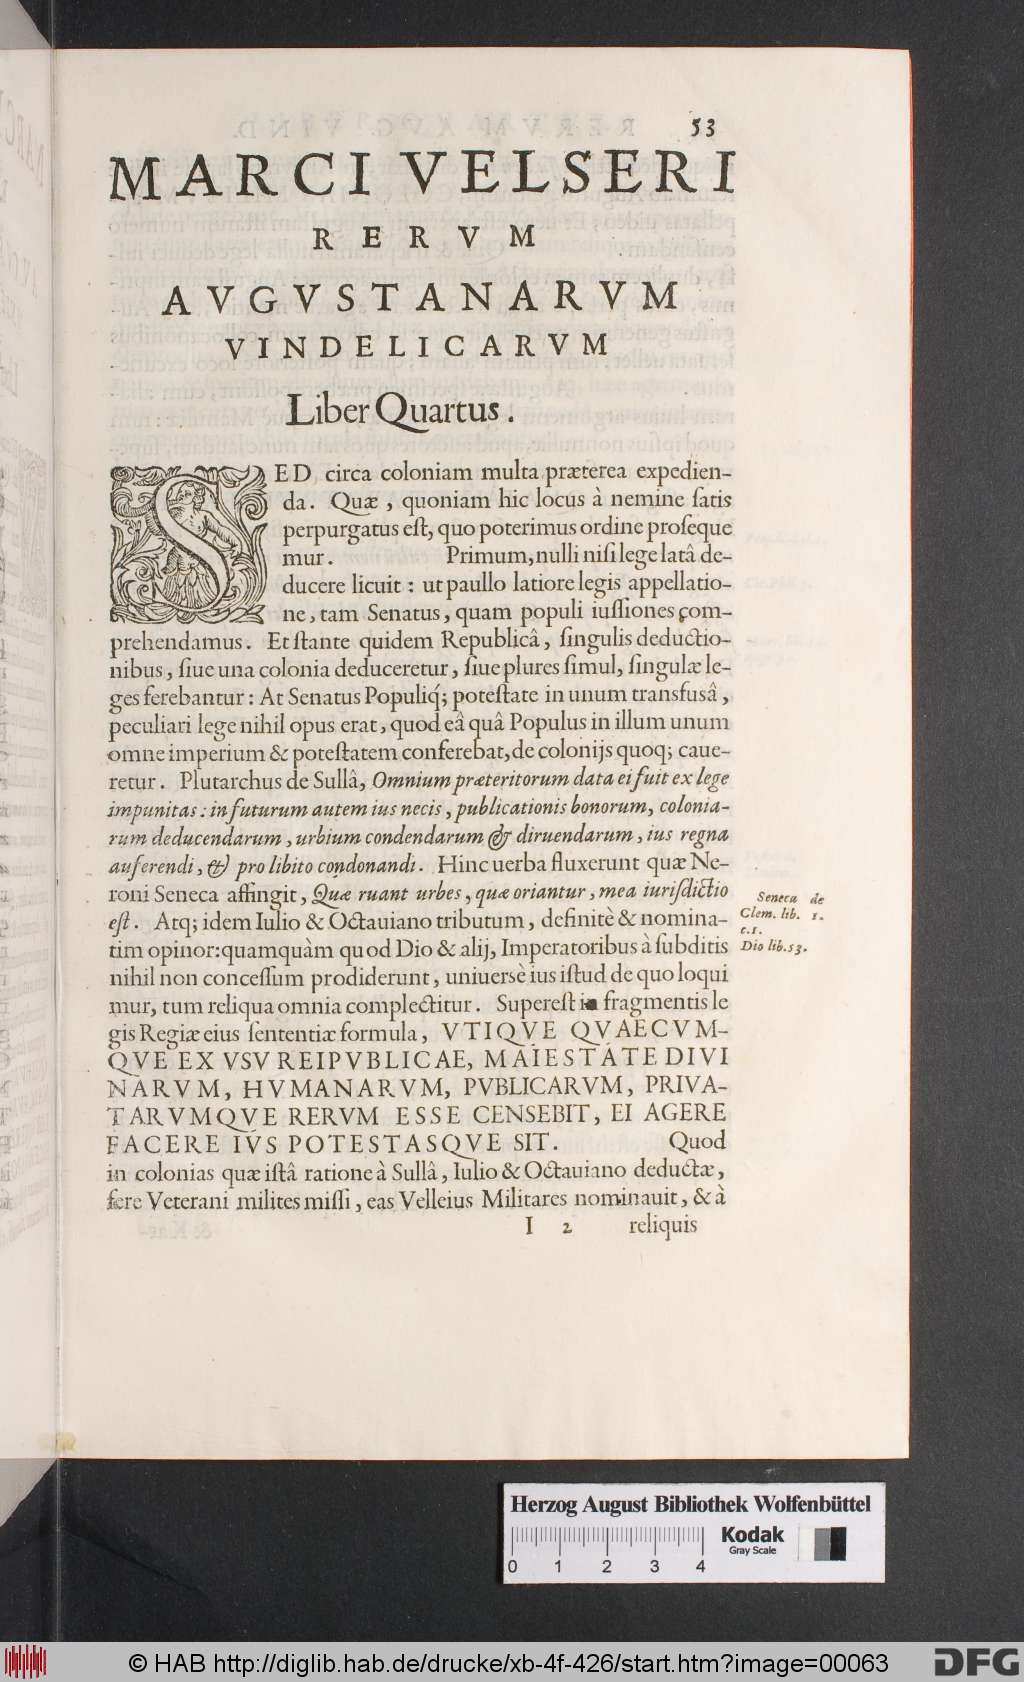 53
MARCI VELSERI
RERVM
AVGVSTANARVM
VINDELICARVM
Liber Quartus.
SED circa coloniam multa præterea expedien-
da. Quæ, quoniam hic locus à nemine ſatis
perpurgatus eſt, quo poterimus ordine proſeque
mur. Primum, nulli niſi lege latâ de-
ducere licuit: ut paullo latiore legis appellatio-
ne, tam Senatus, quam populi iuſſiones com-
prehendamus. Et ſtante quidem Republicâ, ſingulis deductio-
nibus, ſiue una colonia deduceretur, ſiue plures ſimul, ſingulæ le-
ges ferebantur: At Senatus Populiq́; poteſtate in unum transfusâ,
peculiari lege nihil opus erat, quod eâ quâ Populus in illum unum
omne imperium & poteſtatem conferebat, de colonijs quoq; caue-
retur. Plutarchus de Sullâ, Omnium præteritorum data ei fuit ex lege
impunitas: in futurum autem ius necis, publicationis bonorum, colonia-
rum deducendarum, urbium condendarum & diruendarum, ius regna
auferendi, & pro libito condonandi. Hinc uerba fluxerunt quæ Ne-
roni Seneca affingit, Quæ ruant urbes, quæ oriantur, mea iuriſdictio
eſt. Atq; idem Iulio & Octauiano tributum, definitè & nomina-
tim opinor: quamquàm quod Dio & alij, Imperatoribus à ſubditis
nihil non conceſſum prodiderunt, uniuersè ius iſtud de quo loqui
mur, tum reliqua omnia complectitur. Supereſt in fragmentis le
gis Regiæ eius ſententiæ formula, VTIQVE QVAECVM-
QVE EX VSV REIPVBLICAE, MAIESTATE DIVI
NARVM, HVMANARVM, PVBLICARVM, PRIVA-
TARVMQVE RERVM ESSE CENSEBIT, EI AGERE
FACERE IVS POTESTASQVE SIT. Quod
in colonias quæ iſtâ ratione à Sullâ, Iulio & Octauiano deductæ,
fere Veterani milites miſſi, eas Velleius Militares nominauit, & à
I 2 reliquis
Seneca de
Clem. lib. 1.
c.1.
Dio lib.53.
Herzog August Bibliothek Wolfenbüttel
0 1 2 3 4
Kodak
Gray Scale
© HAB http://diglib.hab.de/drucke/xb-4f-426/start.htm?image=00063
DFG